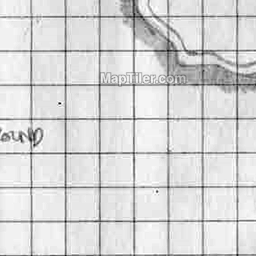 MapTiler.com
OUND